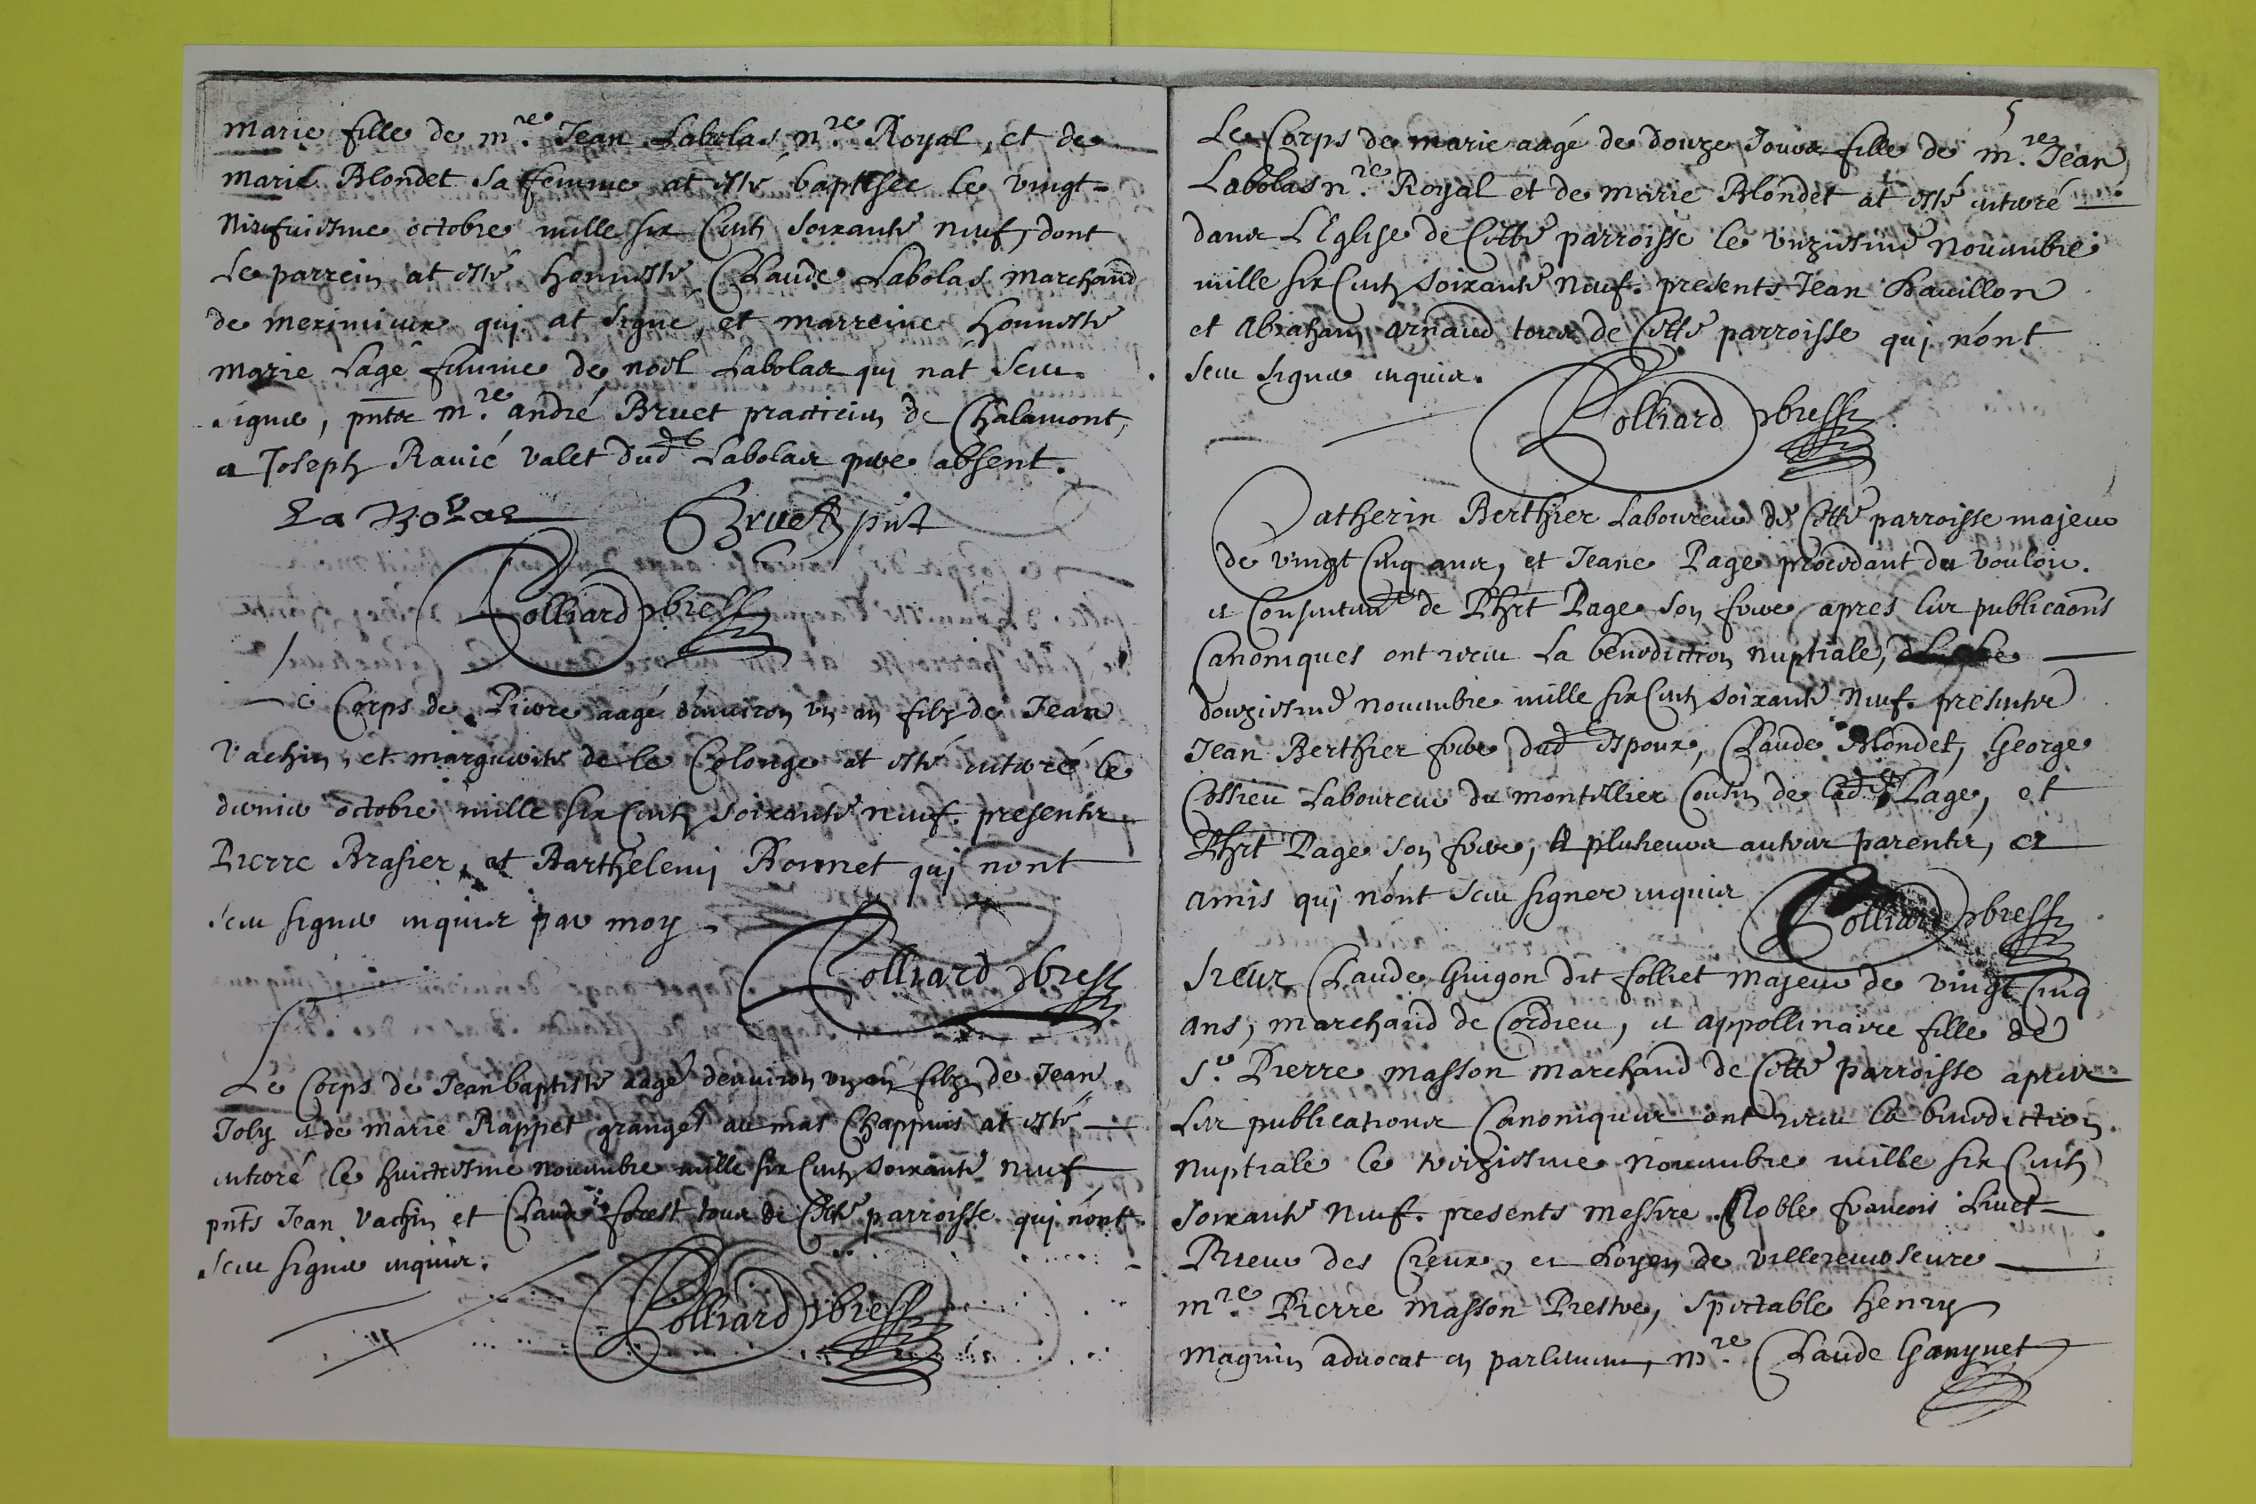 Marie fille de m.re Jean Labolas n.re Royal, et de
Marie Blondet sa femme at esté baptisee le vingt-
neufuiesme octobre mille six cents soixante neuf, dont
Le parrein at esté honneste Claude Labolas marchand
de meximieux qui at signé, et marreine honneste
Marie Lagé femme de noel Labolas qui n'at sceu
signer, pntes m.re andré Bruet practicien de Chalamont,
et Joseph Ravié valet dud Labolas pere absent.
La Bolas Bruet pnt
Colliard
Le Corps de Pierre aagé d'environ un an filz de Jean
Vachin, et margueritte de le Colonge at esté enterré le
dernier octobre mille six cents soixante neuf. presents
Pierre Brasier, et Barthelemy Bonnet qui n'ont
sceu signer enquis par moy
Colliard
Le Corps de Jean baptiste aagé denviron un an filz de Jean
Joly et de marie Rappet granger au mas Chappuis at esté
enterré le huictiesme novembre mille six cents soixante neuf
pnts Jean Vachin et Claude forest tous de Cette parroisse qui n'ont
sceu signer enquis.
Colliard
5
Le Corps de marie aagé de douze Jours fille de m.re Jean
Labolas n.re Royal et de Marie Blondet at esté enterré
dans L'Eglise de Cette parroisse le unziesme novembre
mille six cents soixante neuf. presents Jean
et Abraham arnaud tous de Cette parroisse qui n'ont
sceu signer enquis.
Colliard
Catherin Berthier Laboureur de Cette parroisse majeur
de vingt cinq ans, et Jeane Page procedant du vouloir.
et Consentement de Phrt Page son frere apres les publicaons
Canoniques ont receu La benediction nuptiale, le
douziesme novembre mille six cents soixante neuf. presents
Jean Berthier frere dud espoux, Claude Blondet, George
Cossieu Laboureur du montellier Cousin de lad. Page, et
Phrt Page son frere, et plusieurs autres parents, et
amis qui n'ont sceu signer enquis Colliard
Sieur Claude Guigon dit folliet majeur de vingt cinq
ans, marchand de Cordieu, et appollinaire fille de
S.r Pierre masson marchand de Cette parroisse apres
Les publications Canoniques ont receu la benediction
nuptiale le treiziesme novembre mille six cents
soixante neuf. presents messire Noble francois Livet
Prieur des Creux, et doyen de villereversure
m.re Pierre masson Prestre, spectable henry
magnin advocat en parlement, m.re Claude Ganynet